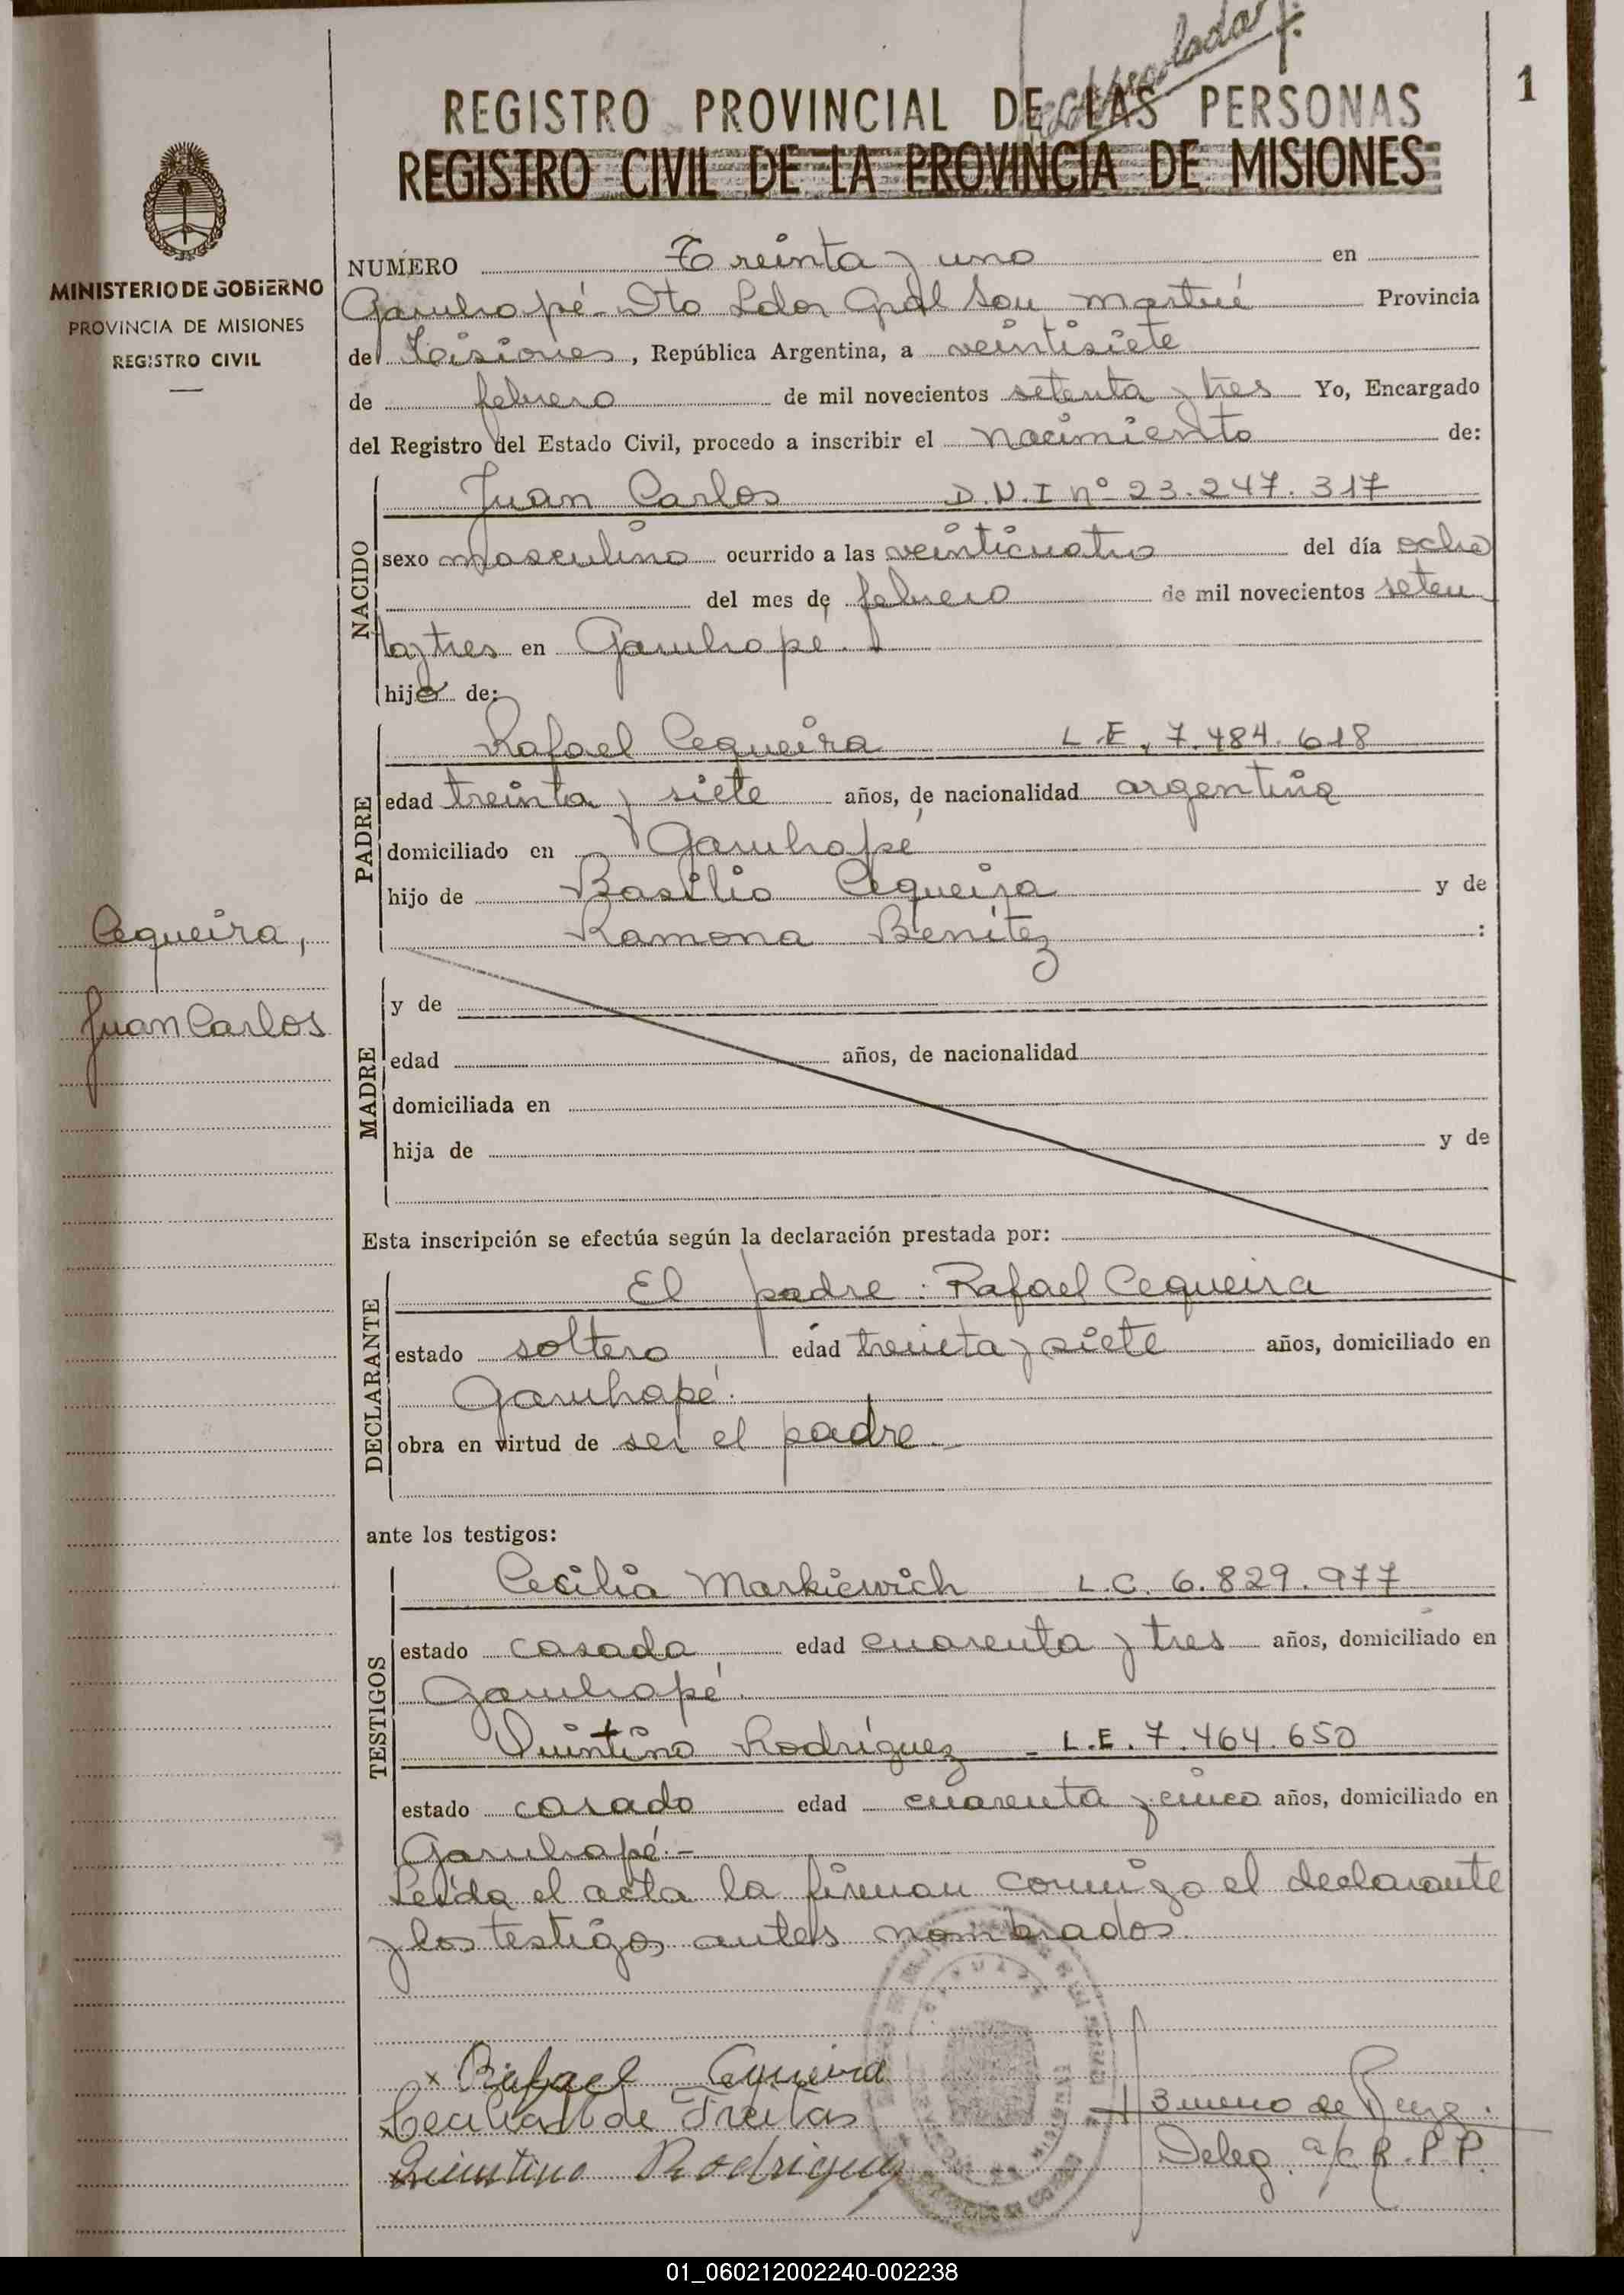 REGISTRO PROVINCIAL DE LAS PERSONAS
1
REGISTRO CIVIL DE LA PROVINCIA DE MISIONES
MINISTERIO DE GOBIERNO
PROVINCIA DE MISIONES
REGISTRO CIVIL
NUMERO Treinta y uno en
Garuhapé - Dto Ldor Gral San Martín Provincia
de Misiones, República Argentina, a veintisiete
de febrero de mil novecientos setenta y tres Yo, Encargado
del Registro del Estado Civil, procedo a inscribir el nacimiento de:
NACIDO
Juan Carlos D.N.I nº 23.247.317
sexo masculino ocurrido a las veinticuatro del día ocho
del mes de febrero de mil novecientos seten
ta y tres en Garuhapé.
hijo de:
PADRE
Rafael Cequeira L.E. 7.484.618
edad treinta y siete años, de nacionalidad argentina
domiciliado en Garuhapé
hijo de Basilio Cequeira y de
Ramona Benítez :
Cequeira,
Juan Carlos
MADRE
y de
edad años, de nacionalidad
domiciliada en
hija de y de
Esta inscripción se efectúa según la declaración prestada por:
DECLARANTE
El padre: Rafael Cequeira
estado soltero edad treinta y siete años, domiciliado en
Garuhapé.
obra en virtud de ser el padre.-
ante los testigos:
TESTIGOS
Cecilia Markiewich L.C. 6.829.977
estado casada edad cuarenta y tres años, domiciliado en
Garuhapé.
Quintino Rodríguez - L.E. 7.464.650
estado casado edad cuarenta y cinco años, domiciliado en
Garuhapé.-
Leída el acta la firman conmigo el declarante
y los testigos antes nombrados.
x Rafael Cequeira
x Cecilia M de Freitas
x Quintino Rodriguez
Deleg. a/c R.P.P.
01_060212002240-002238